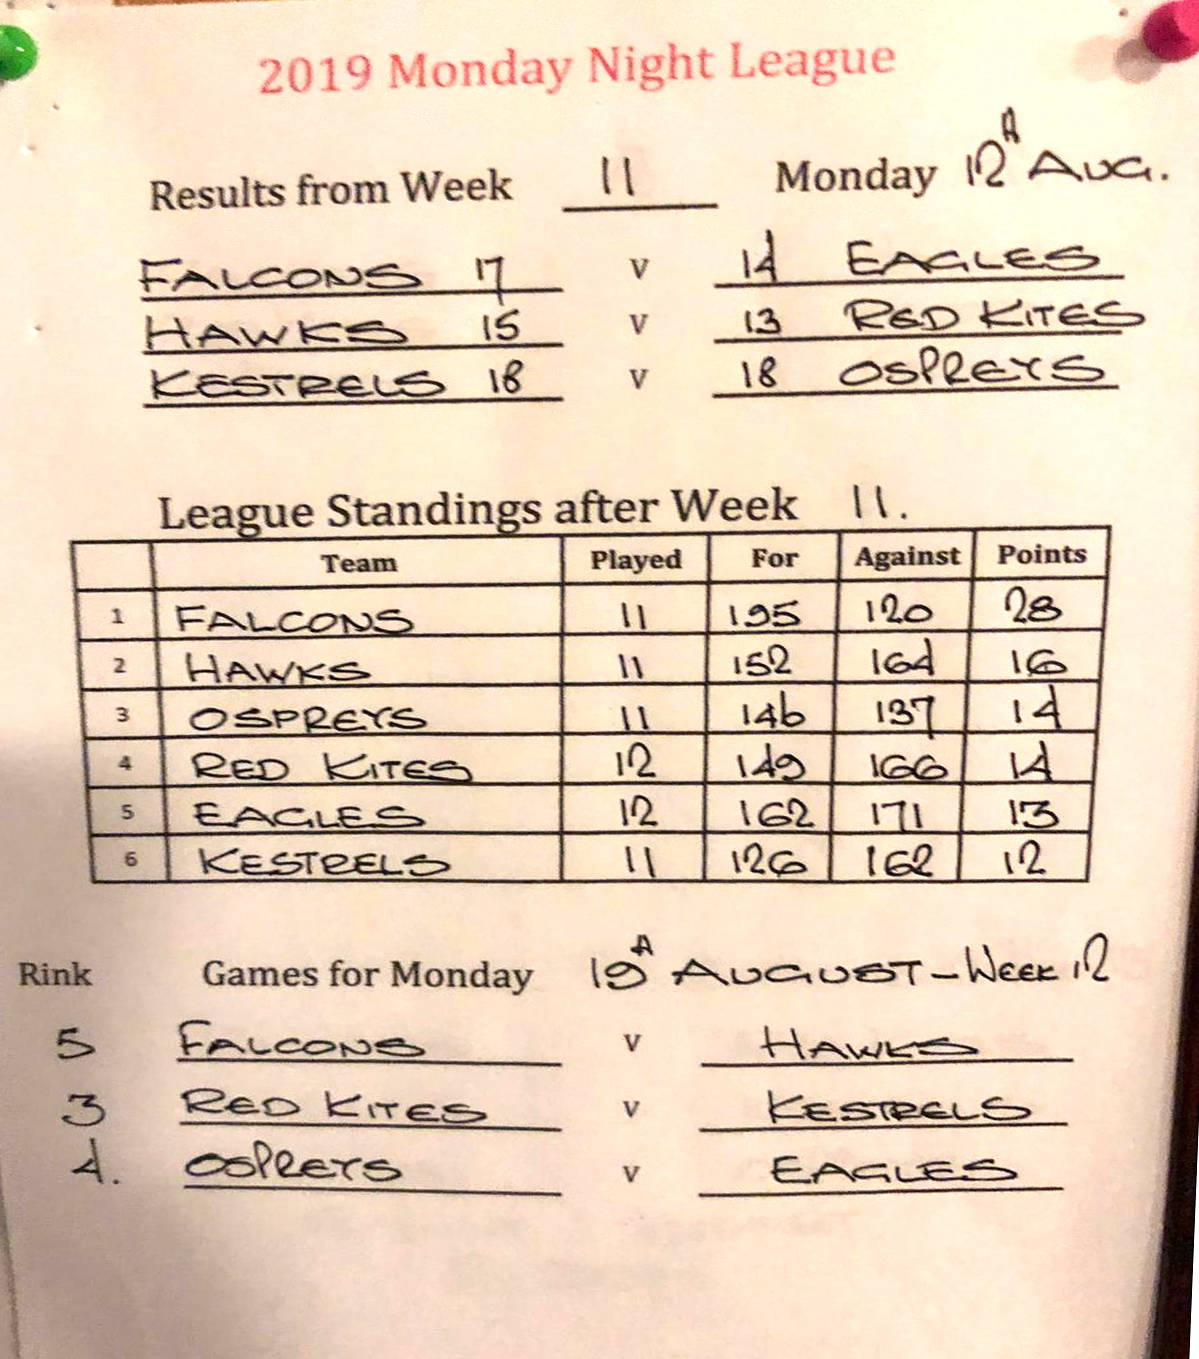 2019 Monday Night League
Results from Week 11 Monday 12th AUG.
FALCONS 17 v 14 EAGLES
HAWKS 15 v 13 RED KITES
KESTRELS 18 v 18 OSPREYS
League Standings after Week 11.
Team Played For Against Points
1 FALCONS 11 195 120 28
2 HAWKS 11 152 164 16
3 OSPREYS 11 146 137 14
4 RED KITES 12 149 166 14
5 EAGLES 12 162 171 13
6 KESTRELS 11 126 162 12
Rink Games for Monday 19th AUGUST - WEEK 12
5 FALCONS v HAWKS
3 RED KITES v KESTRELS
4. OSPREYS v EAGLES